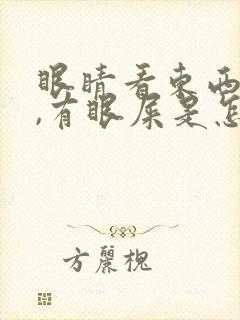 眼睛看东西
,有眼屎是怎
方麗槐